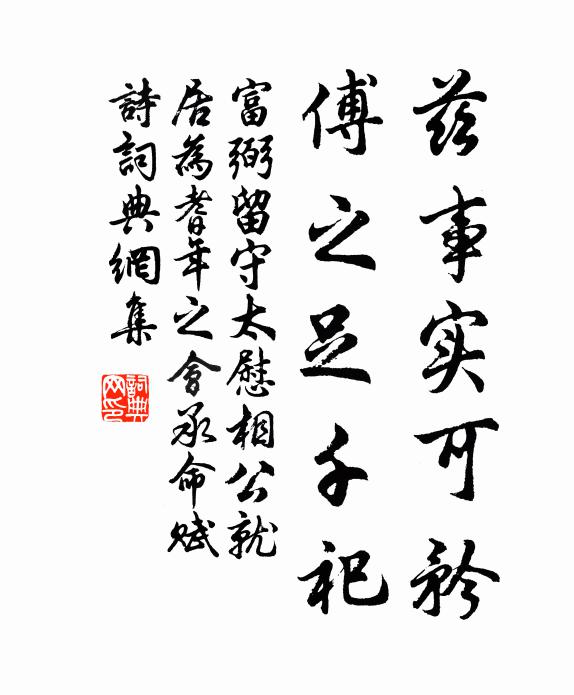 茲事实可矜
傅之足千祀
富弼留守太慰相公就
居為耆年之會承命賦
詩詞典網集
詞典网印